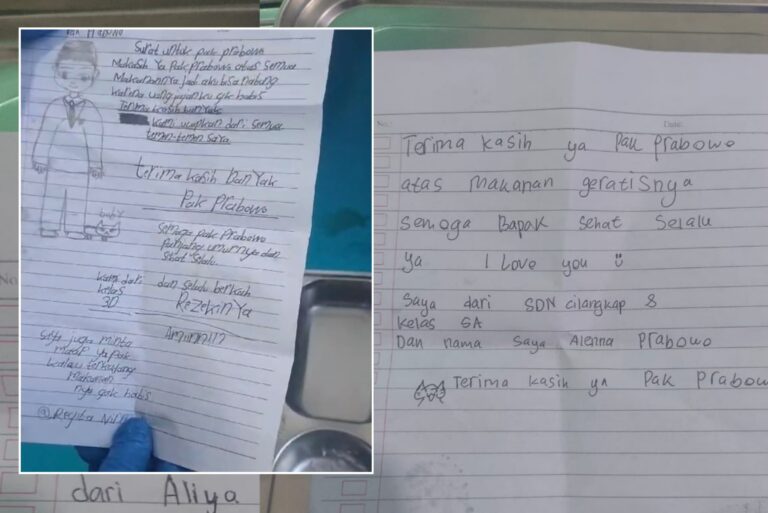 Pak Prabowo
Surat untuk pak prabowo
Makasih Ya Pak Prabowo atas semua
Makanannya jadi aku bisa nabung
karna uang jajanku gk habis
Terima kasih banyak
kami ucapkan dari semua
temen-temen saya
terima kasih banyak
Pak Prabowo
baby
Semoga pak Prabowo
panjang umurnya dan
sihat selalu.
dan selalu berkah
Rezekin Ya
Amunnnn
kami dari
kelas
3D
Saya juga minta
maaf ya pak
kalau terkadang
Makanan
nya gak habis
@Regita
No
dari Aliya
No.:
Date:
Terima kasih ya Pak Prabowo
atas makanan geratisnya
semoga Bapak sehat selalu
ya I Love you
Saya dari SDN cilangkap 8
kelas 5A
Dan nama saya Alenna Prabowo
Terima kasih ya Pak Prabow